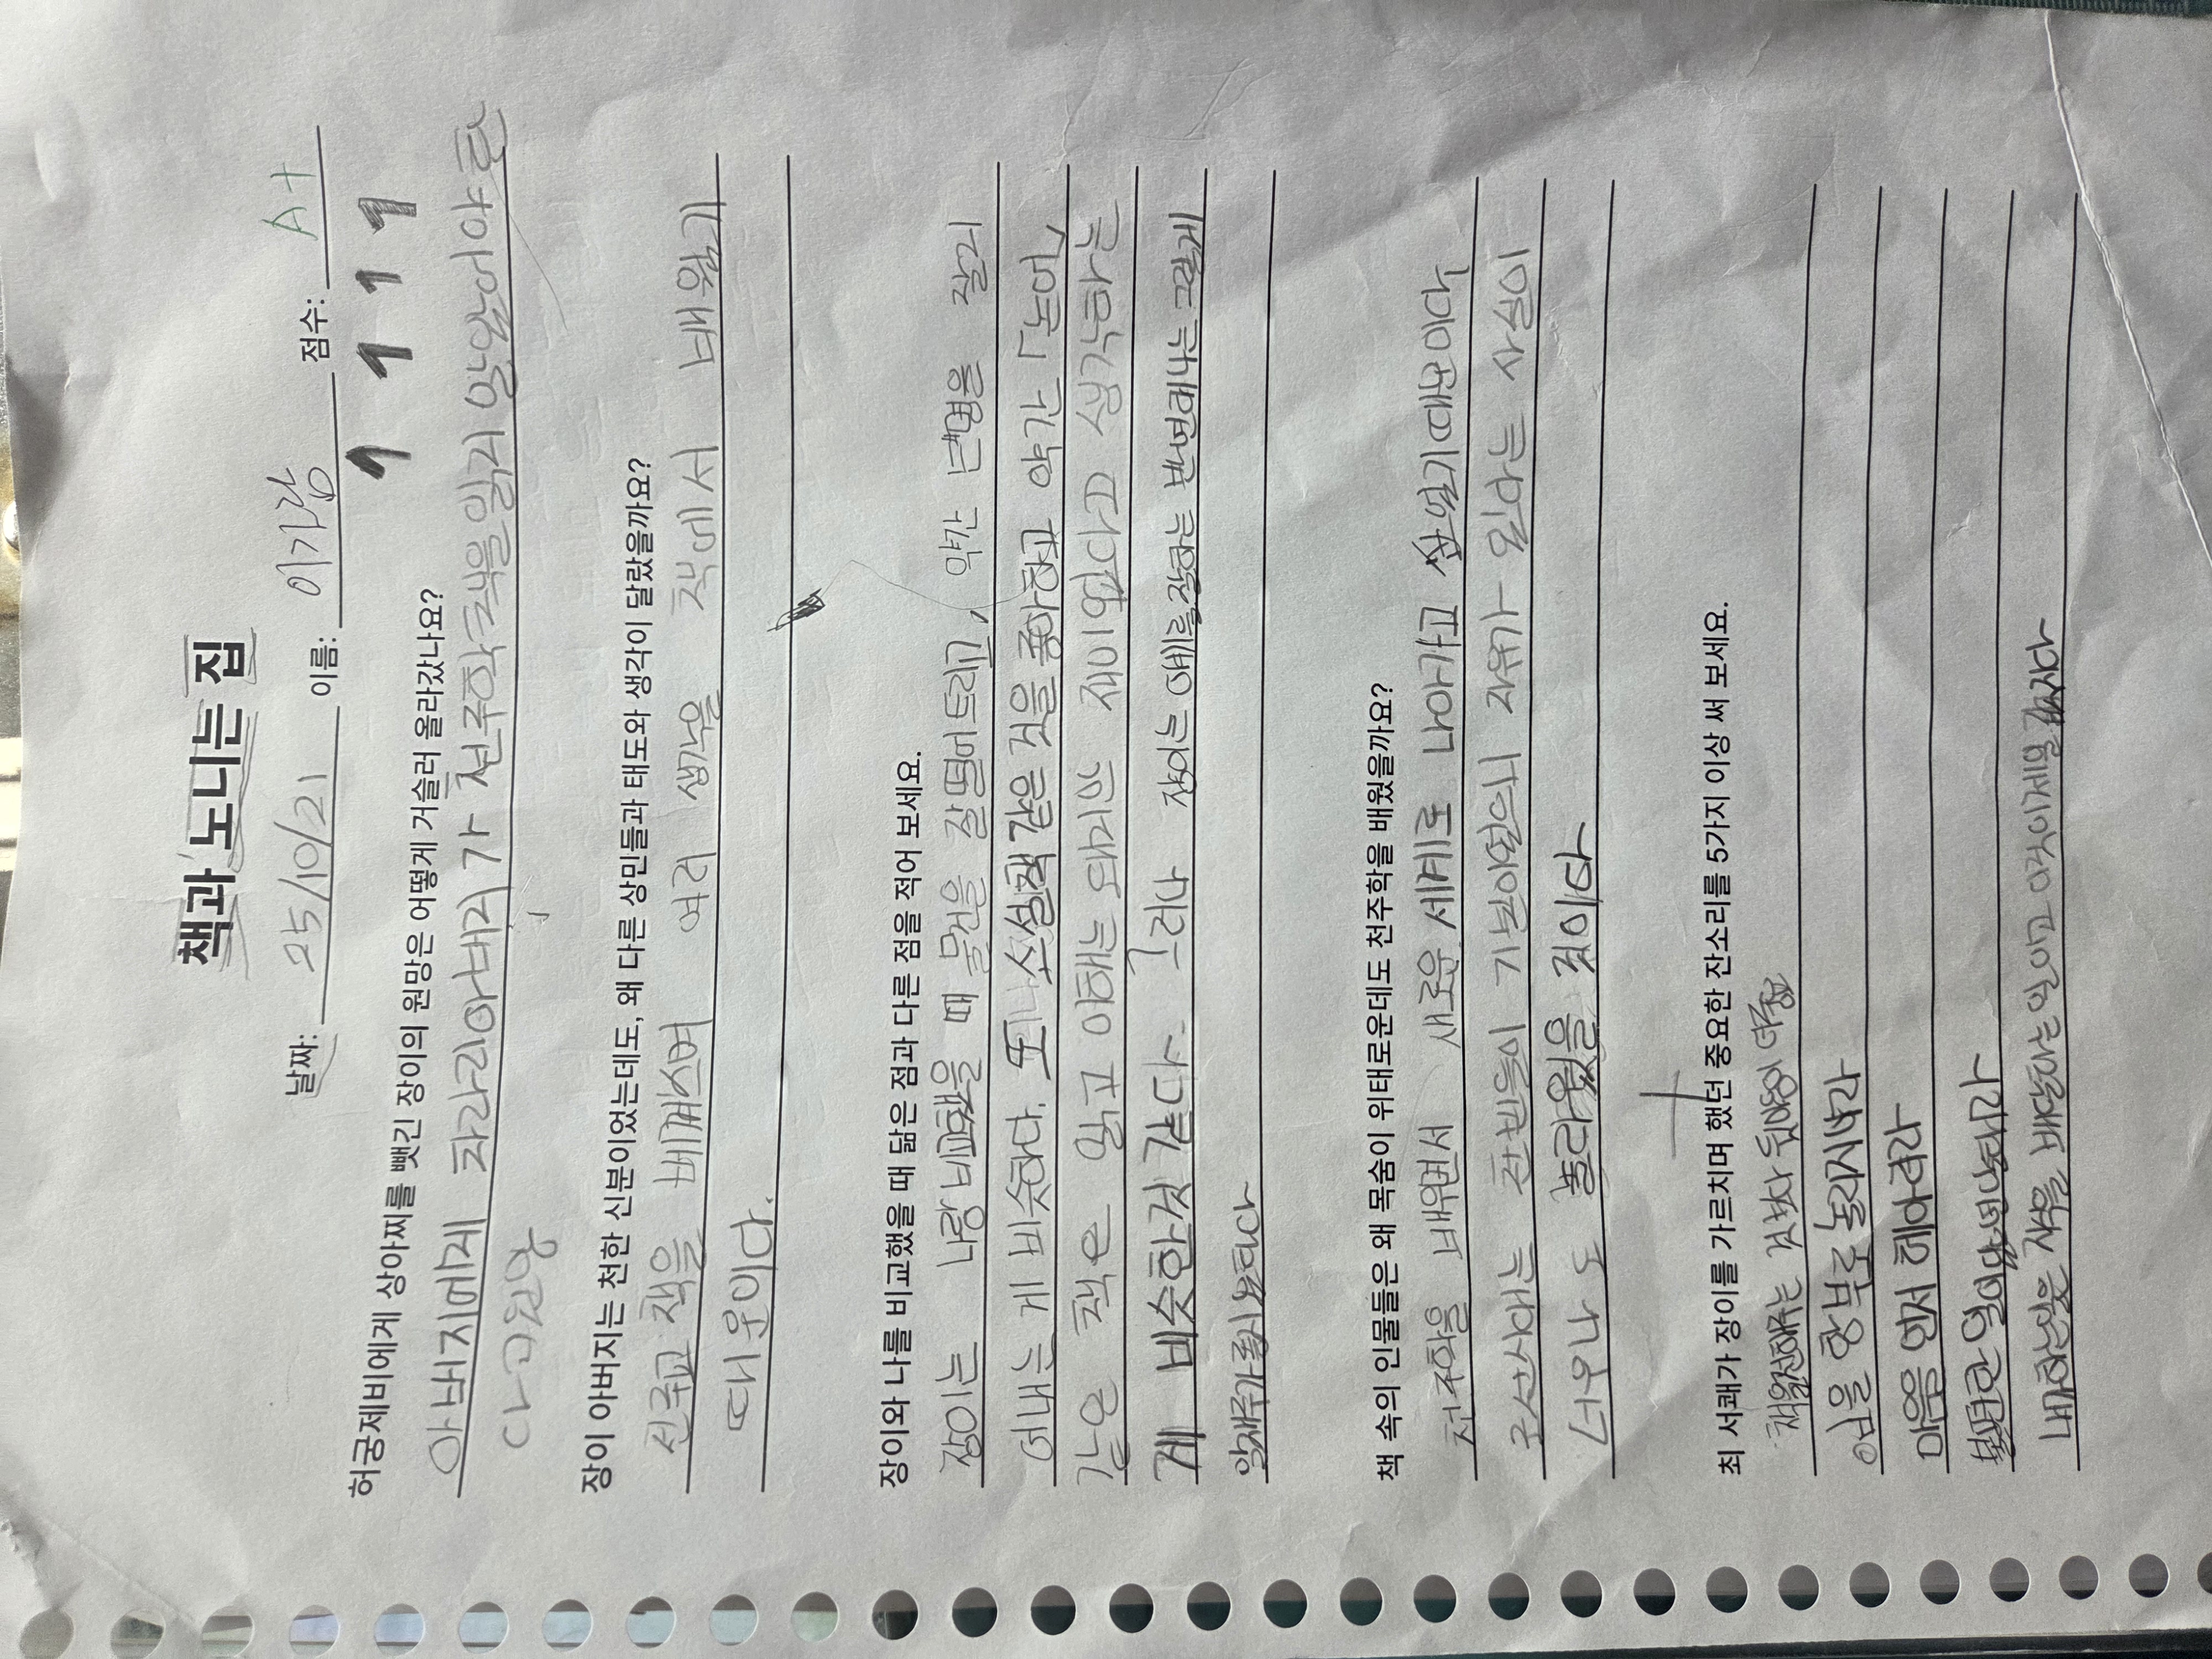 책과 노니는 집
날짜: 25/10/21 이름: 이가람 점수: A+
허궁제비에게 상아찌를 뺏긴 장이의 원망은 어떻게 거슬러 올라갔나요?
아버지에게 차라리아버지가 천주학책을읽지 않았어야 한
다고원망
장이 아버지는 천한 신분이었는데도, 왜 다른 상민들과 태도와 생각이 달랐을까요?
천주교 책을 베껴쓰며 여러 생각을 책에서 배웠기
때문이다.
장이와 나를 비교했을 때 닮은 점과 다른 점을 적어 보세요.
장이는 나랑 비교했을 때 물건을 잘떨어트리고, 약간 변명을 잘지
어내는 게 비슷하다. 또 소설책 같은 것을 좋아하고 약간 「논어」
같은 책은 읽고 이해는 되지만 재미없다고 생각하는
게 비슷한것 같다. 그러나 장이는 잘하는 반면에나는 그렇게
책 속의 인물들은 왜 목숨이 위태로운데도 천주학을 배웠을까요?
천주학을 배우면서 새로운 세계로 나아가고 싶었기때문이다
조선시대는 천민들이 기본이었으니 자유가 있다는 사실이
너무나도 놀라웠을 것이다
최 서쾌가 장이를 가르치며 했던 중요한 잔소리를 5가지 이상 써 보세요.
입을 함부로 놀리지마라
마음을 먼저 헤아려라
내가하는일은 책을 배달하는 일이고 이것이제일